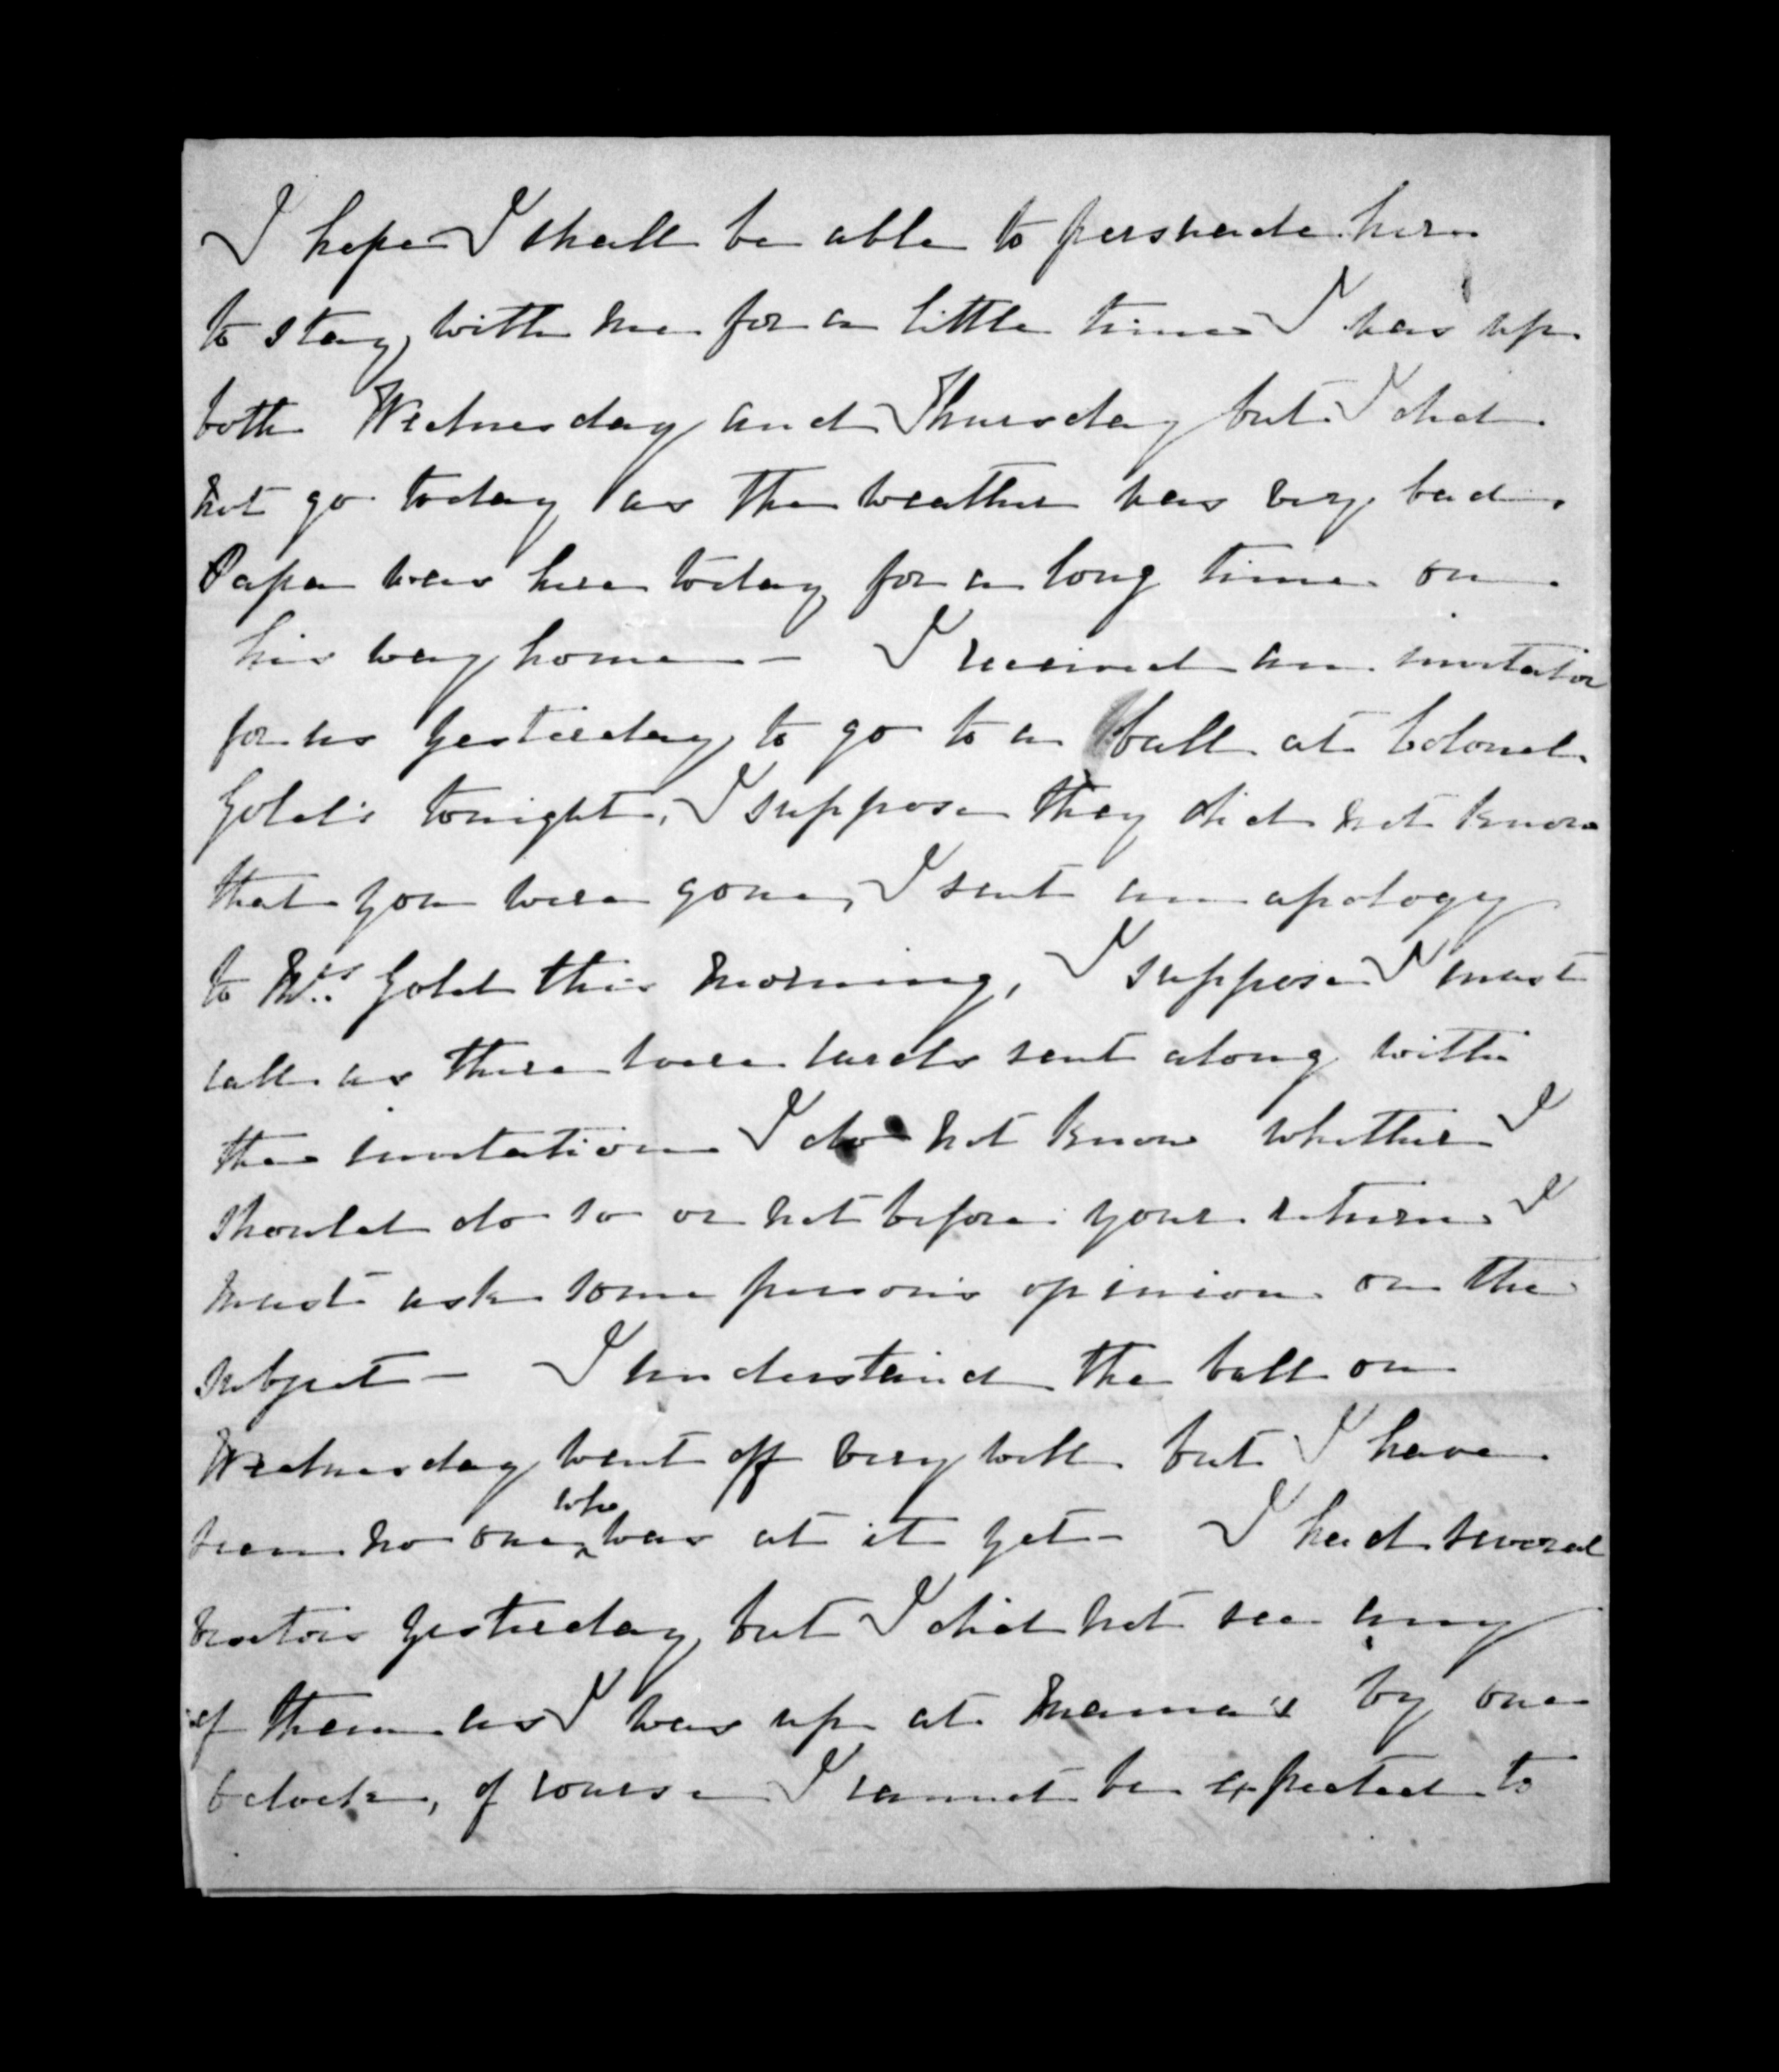 I hope I shall be able to persuade her
to stay with me for a little time I was up
both Wednesday and Thursday but I did
not go today as the weather was very bad.
Papa was here today for a long time on
his way home - I received an invitation
for us yesterday to go to a ball at Colonel
Gold's tonight, I suppose they did not know
that you were gone, I sent an apology
to Mrs Gold this morning, I suppose I must
call as there were cards sent along with
the invitation I do not know whether I
should do so or not before your return I
must ask some person's opinion on the
subject - I understand the ball on
Wednesday went off very well but I have
seen no one who was at it yet - I had several
visitors yesterday but I did not see any
of them as I was up at Mama's by one
o'clock, of course I cannot be expected to